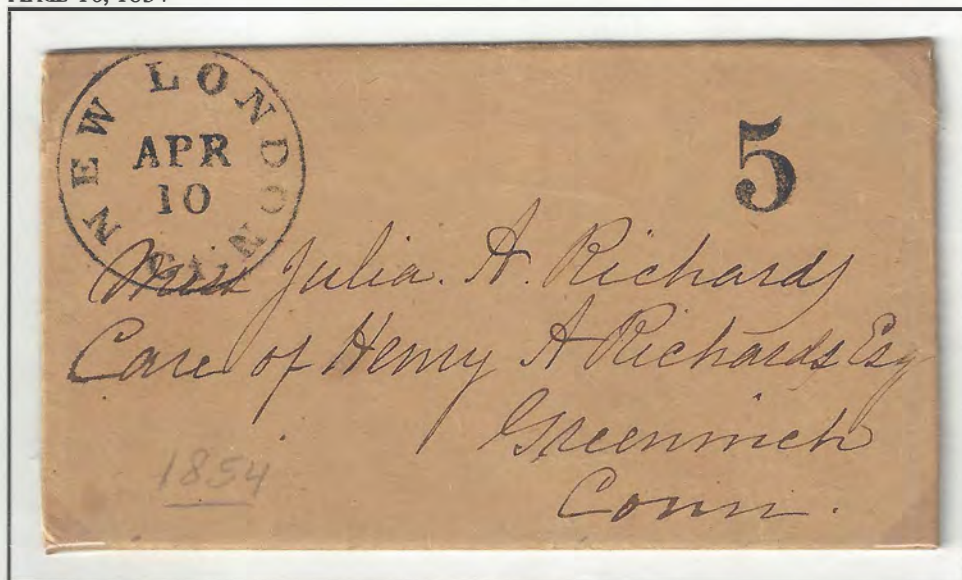 APRIL 10, 1854
NEW LONDON CON
APR
10
5
Miss Julia. A. Richards
Care of Henry A Richards Esq
Greenwich
Conn.
1854